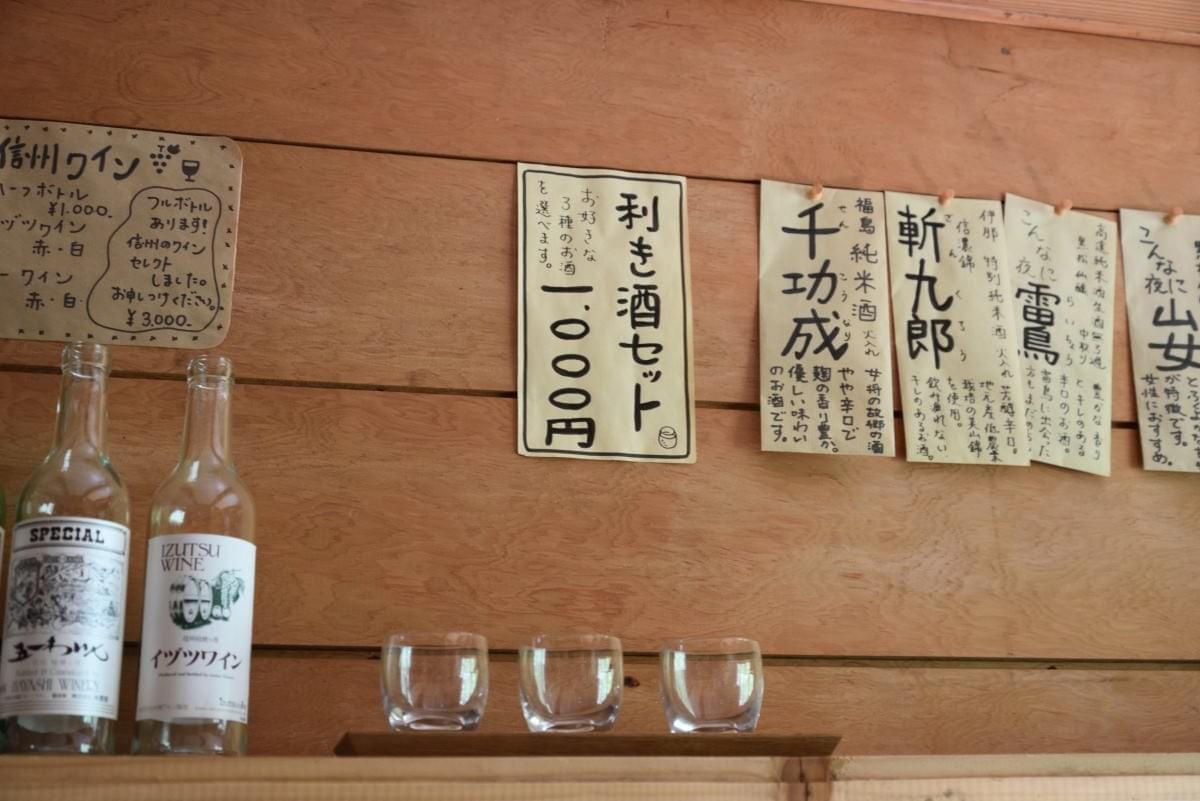 信州ワイン
ーフボトル
¥1.000-
ヅツワイン
赤・白
ー ワイン
赤・白
フルボトル
あります!
信州のワイン
セレクト
しました。
お申しつけください。
¥3.000-
利き酒セット
お好きな
3種のお酒
を選べます。
一、〇〇〇円
福島 純米酒 火入れ
千功成
せん こうなり
女将の故郷の酒
やや辛口で
麹の香り豊か。
優しい味わい
のお酒です。
伊那 特別純米酒 火入れ
信濃錦
斬九郎
ざん くろう
芳醇辛口。
地元産低農薬
栽培の美山錦
を使用。
飲み疲れない、
キレのあるお酒。
高遠純米酒生酒無ろ過
黒松仙醸 中取り
こんな夜に
雷鳥
らいちょう
豊かな香り
とキレのある
辛口のお酒。
こんな夜に
山女
が特徴です。
女性におすすめ。
SPECIAL
五一わいん
HAYASHI WINERY
IZUTSU
WINE
イヅツワイン